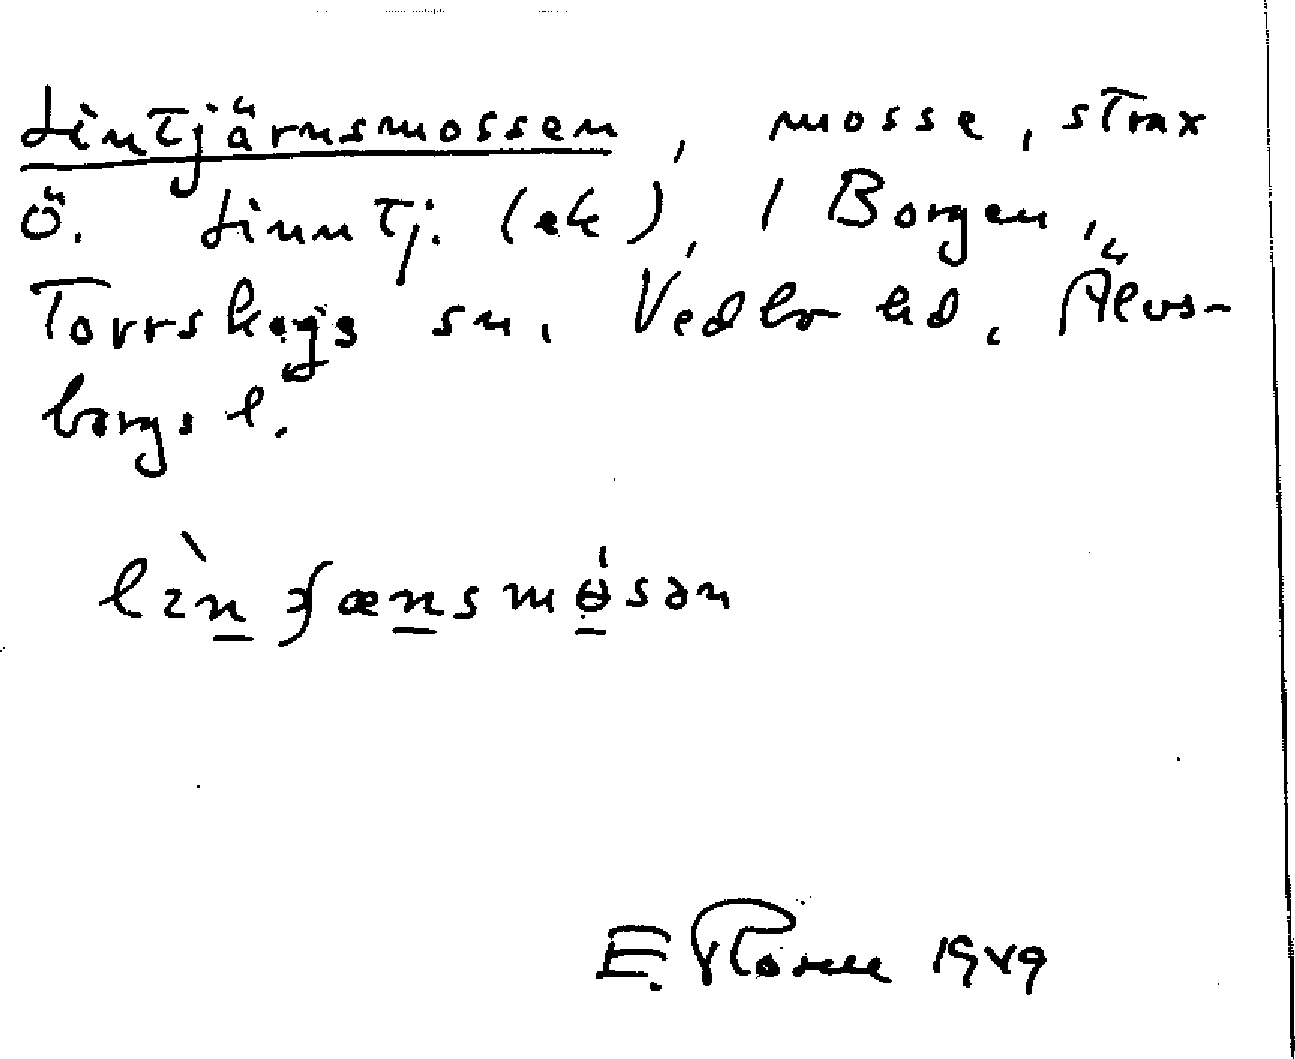 Lintjärnsmossen, mosse, strax
ö. Linntj. (ek), / Borgen,
Torrskogs sn, Vedbo hd, Älvs-
borgs l.
E. 1949